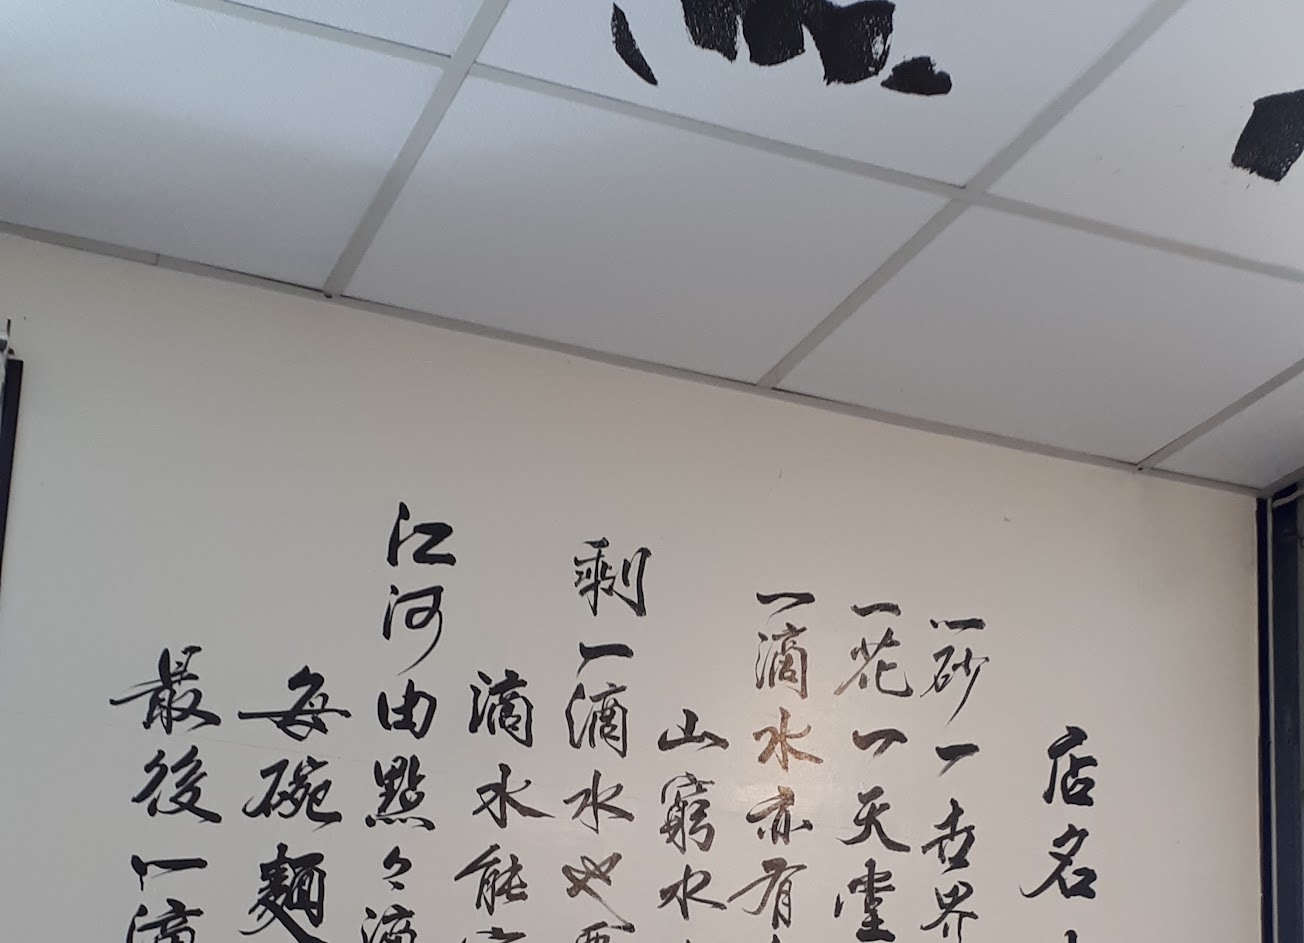 店名
一砂一世界
一花一天堂
一滴水亦有
山窮水
剩一滴水也要
滴水能穿
江河由點々滴
每碗麵
最後一滴